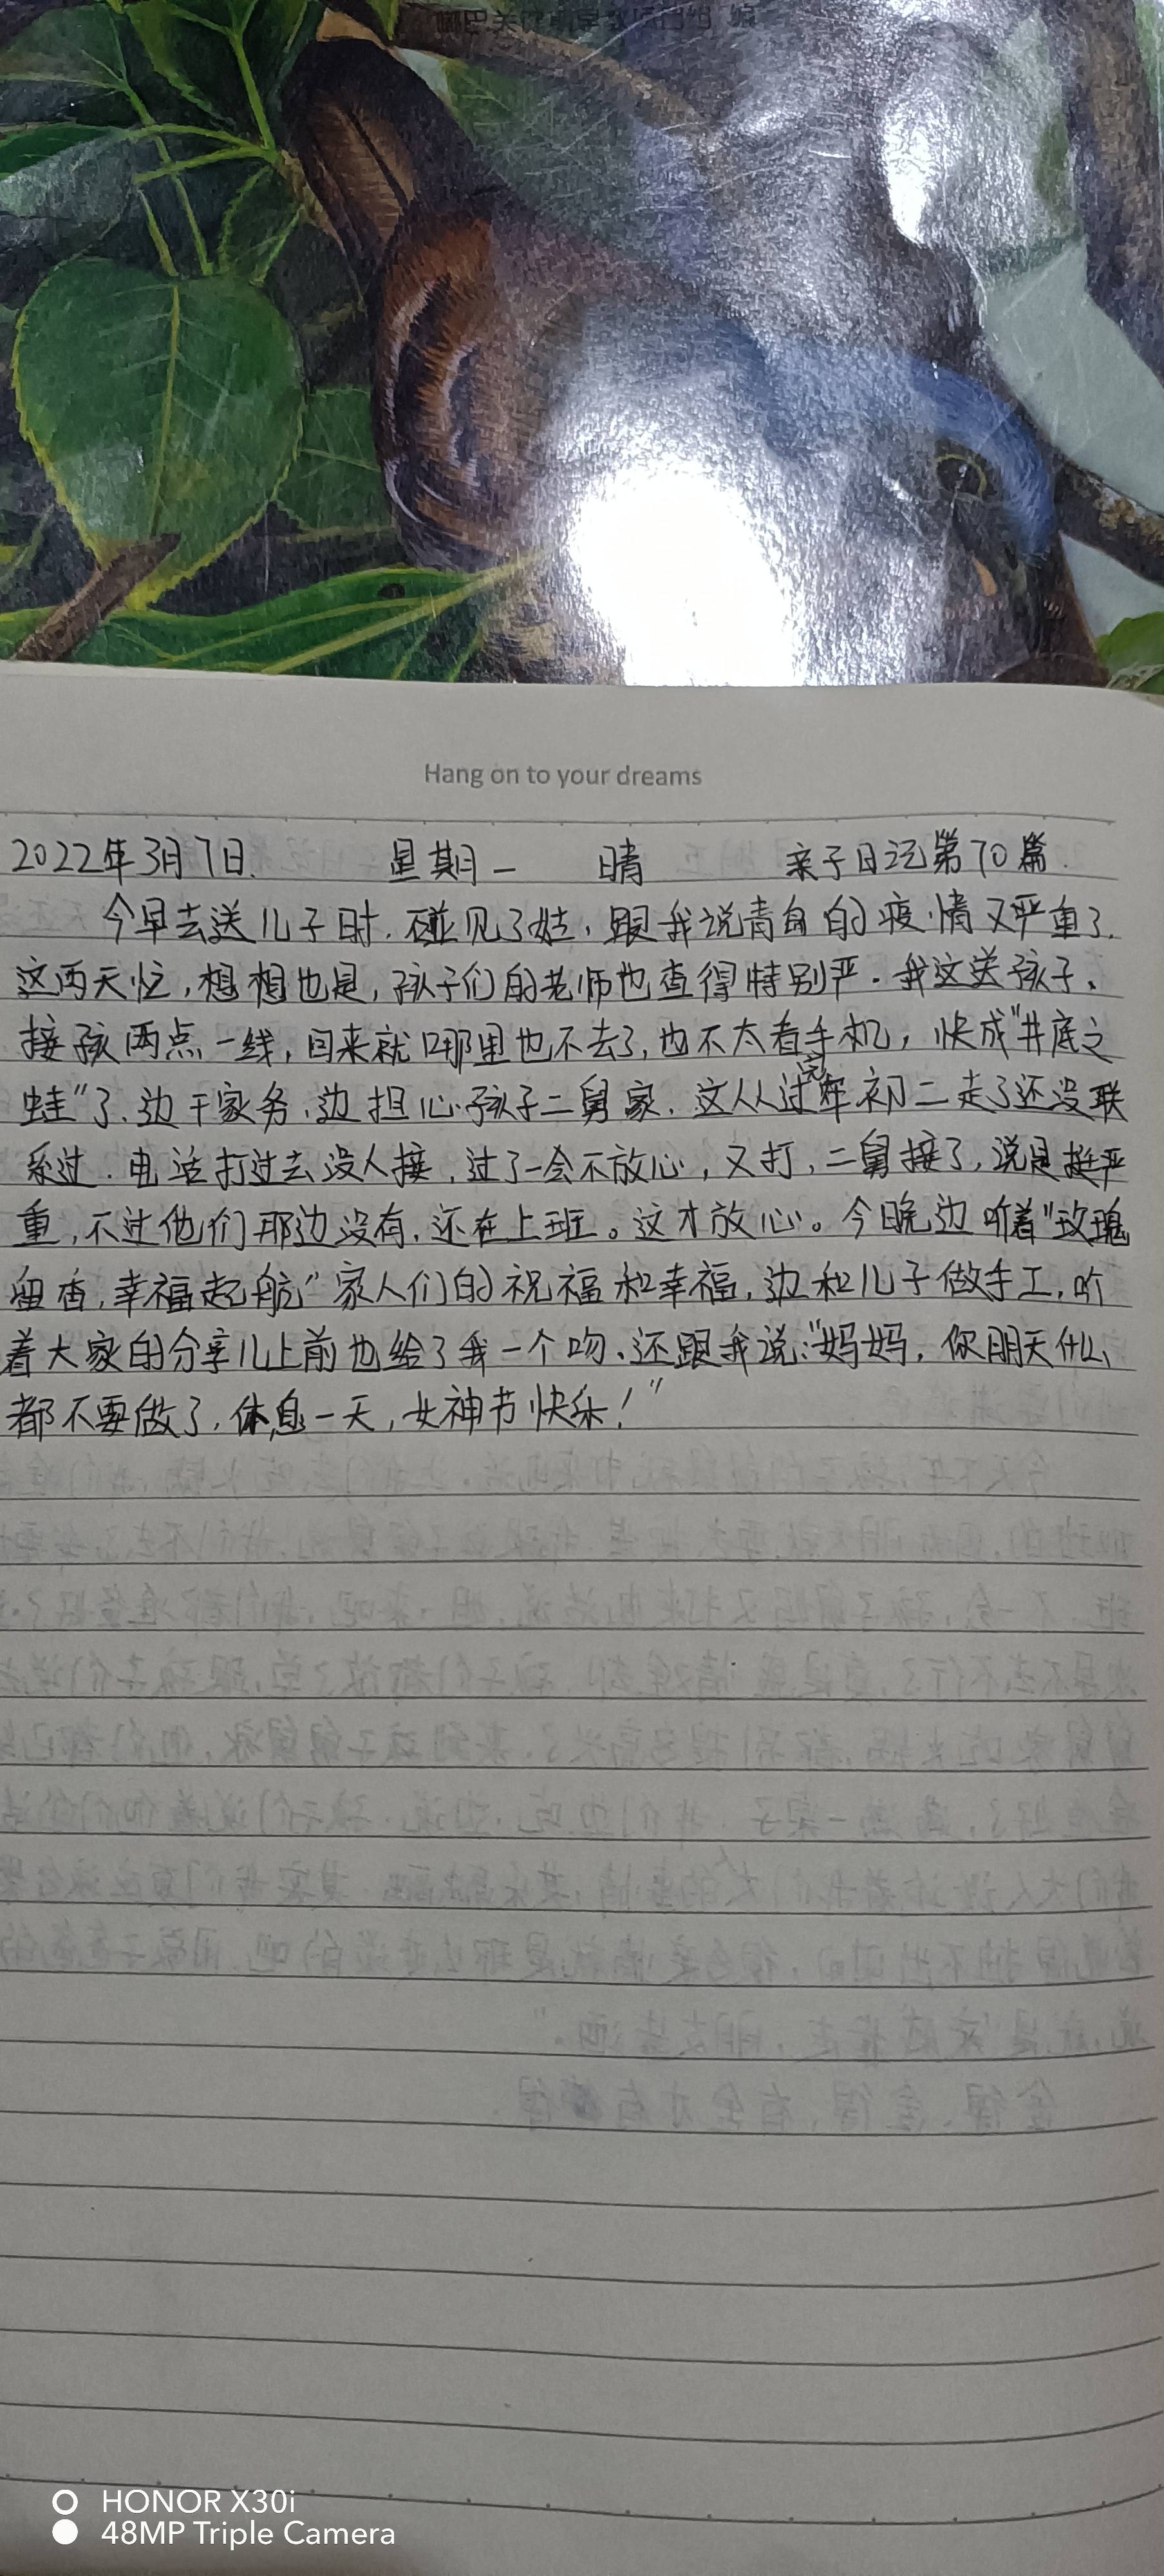 Hang on to your dreams
2022年3月7日. 星期一 晴 亲子日记第70篇.
今早去送儿子时,碰见了姑,跟我说青岛的疫情又严重了.
这两天忙,想想也是,孩子们的老师也查得特别严.我这送孩子、
接孩两点一线,回来就哪里也不去了,也不太看手机,快成"井底之
蛙"了.边干家务,边担心孩子二舅家.这从过完年初二走了还没联
系过.电话打过去没人接,过了一会不放心,又打,二舅接了,说是挺严
重,不过他们那边没有,还在上班。这才放心。今晚边听着"玫瑰
留香,幸福起航"家人们的祝福和幸福,边和儿子做手工,听
着大家的分享儿上前也给了我一个吻、还跟我说:"妈妈,你明天什么
都不要做了,休息一天,女神节快乐!"
HONOR X30i
48MP Triple Camera